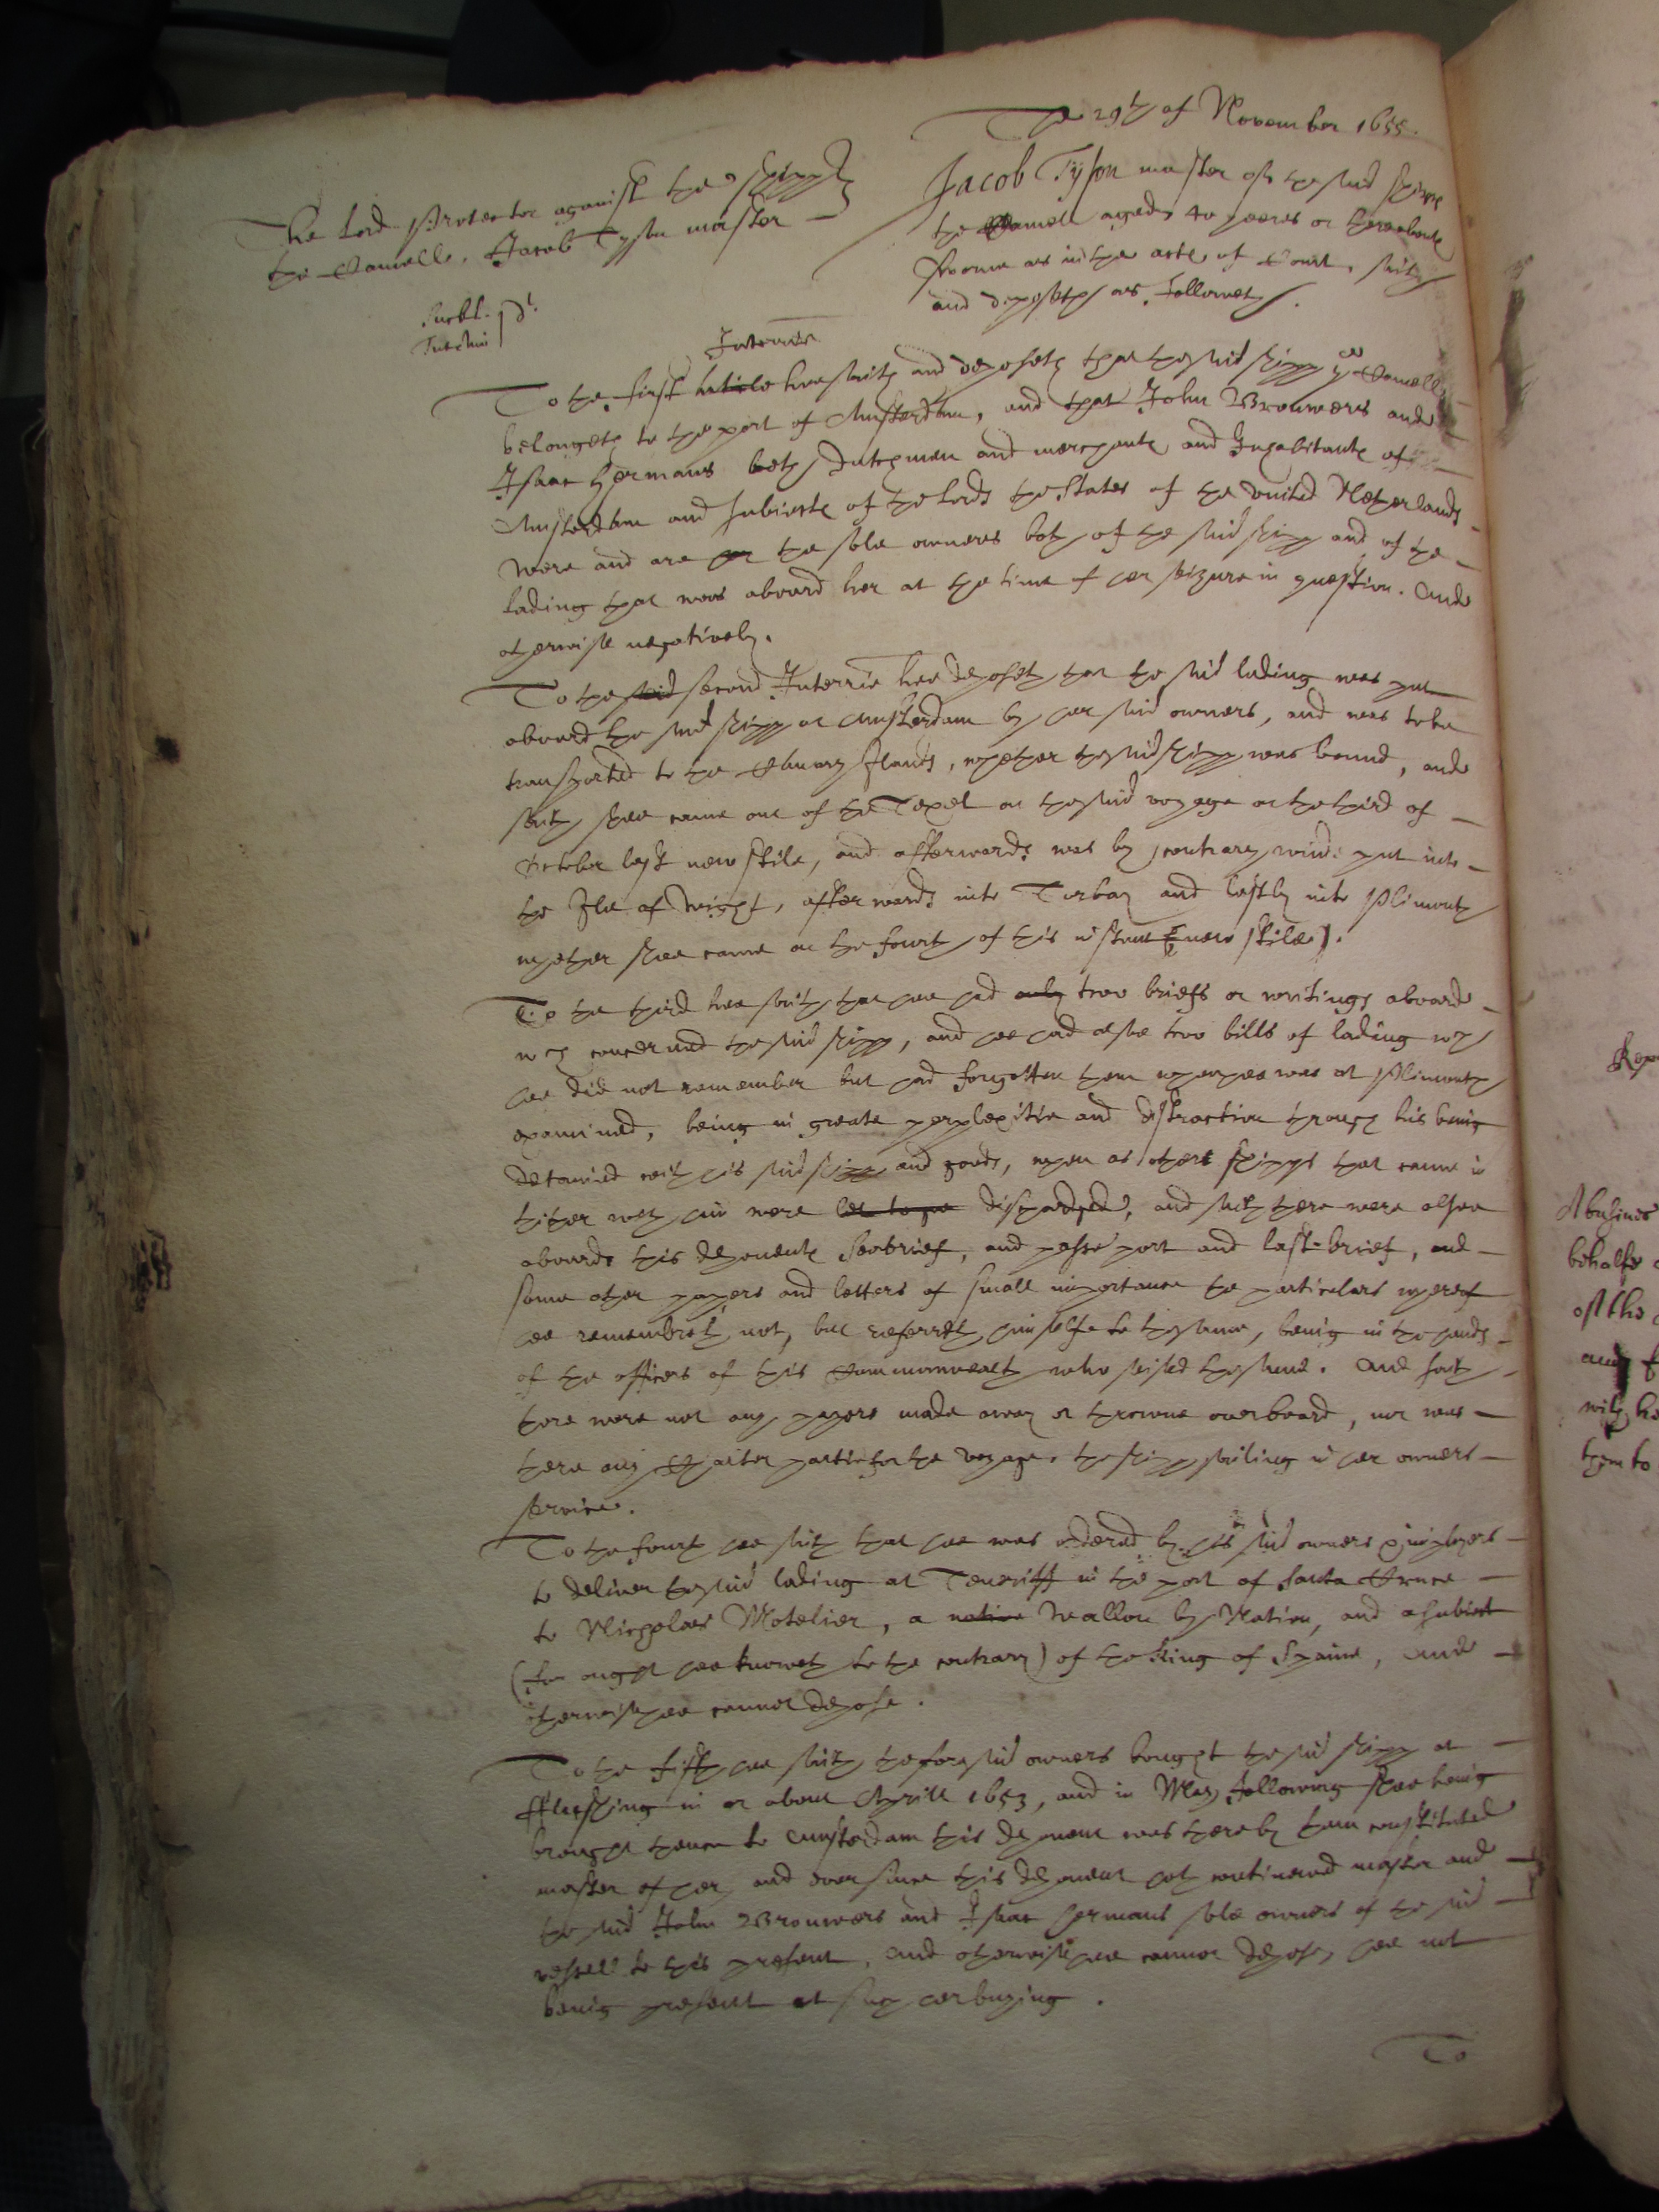 The 29th of November 1655.
The Lord Protector against the shipp
the Camell, Jacob Tyson master
Jacob Tyson master of the said shipp
the Camell aged 40 yeeres or thereabouts
sworne as in the acte of Court, saith
and deposeth as followeth.
Suckl.
dt
Interrie
To the first article hee saith and deposeth that the said shipp ye Camell
belongeth to the port of Amsterdam, and that John Brouwers and
Isaac Hermans both Dutchmen and merchants and Inhabitants of
Amsterdam and subiects of the Lords the States of the United Netherlands
were and are the sole owners both of the said shipp and of the
lading that was aboard her at the time of her seizure in question. And
otherwise negatively.
To the said second Interrie hee deposeth that the said lading was put
aboard the said shipp at Amsterdam by her said owners, and was to be
transported to the Canary Ilands, whether the said shipp was bound, and
saith shee came out of the Texel on the said voyage on the third of
October last new stile, and afterwards was by contrary winds put into
the Ile of Wight, afterwards into Torbay and lastly into Plimouth
whether shee came on the fourth of this instant (new stile).
To the third hee saith that hee had only two briefs or writings aboard
wch concerned the said shipp, and hee had alsoe two bills of lading wch
hee did not remember but had forgotten them when hee was at Plimouth
examined, being in greate perplexitie and distraction through his being
detained with his said shipp and goods, when as other shipps that came in
thither with him were let to goe discharged, and saith there were alsoe
aboard this deponents Seabrief, and passe port and last-brief, and
some other papers and letters of small importance the particulars whereof
hee remembreth not, but referreth himselfe to the same, being in the hands
of the officers of this Commonwealth who seised the same. And saith
there were not any papers made away or throwne overboard, nor was
there any Charter partie for the voyage, the shipp sailing in her owners
service.
To the fourth hee saith that hee was ordered by his said owners imployers
to deliver the said lading at Teneriff in the port of Santa Cruce
to Nicholas Motelier, a native Wallon by Nation, and a subiect
(for ought hee knoweth to the contrary) of the King of Spaine, And
otherwise hee cannot depose.
To the fifth hee saith the foresaid owners bought the said shipp at
fflushing in or about Aprill 1653, and in May following shee being
brought thence to Amsterdam this deponent was there by them constituted
master of her, and ever since this deponent hath continued master and
the said John Brouwers and Isaac Hermans sole owners of the said
vessell to this present, And otherwise hee cannot depose, hee not
being present at such her buying.
To
behalfe
of the
any
with he
them to